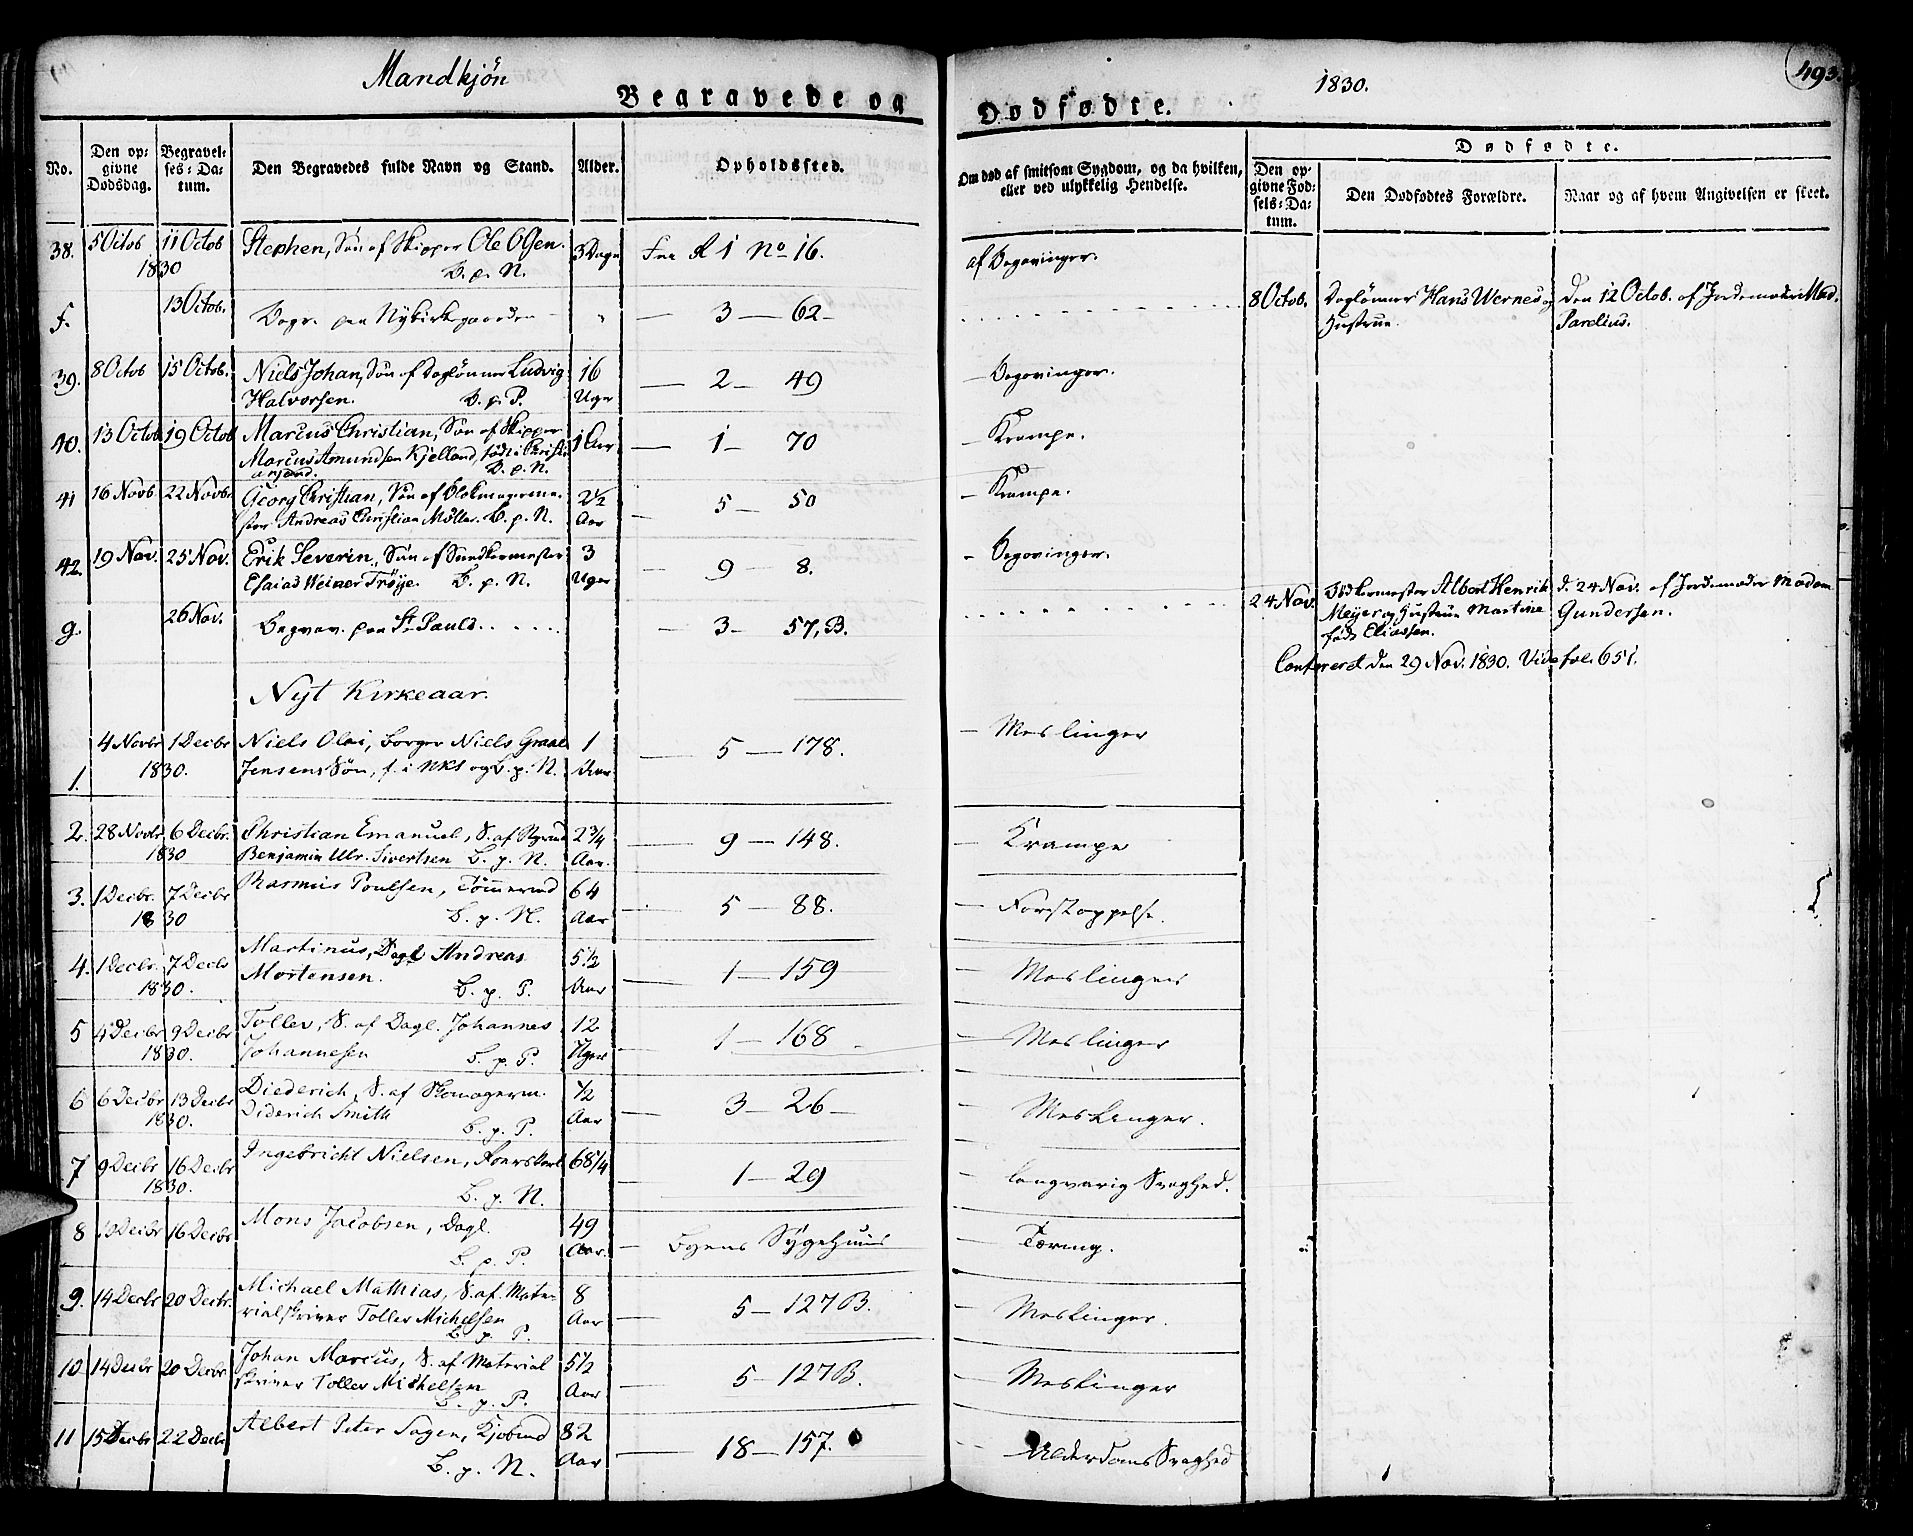 Mandkjøn
Begravede og
Dødfødte.
1830.
493.
No.
Den op-
givne
Dødsdag.
Begravel-
ses-Da-
tum.
Den Begravedes fulde Navn og Stand.
Alder.
Opholdssted.
Om død af smitsom Sygdom, og da hvilken,
eller ved ulykkelig Hendelse.
Dødfødte.
Den op-
givne Fød-
sels-Da-
tum.
Den Dødfødtes Forældre.
Naar og af hvem Angivelsen er skeet.
38. 5 Octob 11 Octob Stephen, Søn af Skipper Ole Olsen. 3 Dage R 1 No 16. af Begovinger.
1830 B. p. N.
f. 13 Octob. Begr. paa Nykirkegaarden — " — 3 — 62 — 8 Octob. Dagløнner Hans Wernes og Den 12 Octob. af Jordemoder Mad.
Hustrue. Parelius.
39. 8 Octob 15 Octob. Niels Johan, Søn af Dagløнner Ludvig 16 — 2 — 49 — Begovinger.
Halvorsen. B. p. P. Uger
40. 13 Octob 19 Octob Marcus Christian, Søn af Skipper 1 Aar — 1 — 70 — Krampe.
Marcus Amundsen Kjelland, født i Christi-
ansand. B. p. N.
41 16 Novb. 22 Novb. Georg Christian, Søn af Blokmagerme- 2½ — 5 50 — Krampe.
ster Andreas Christian Müller. B. p. N. Aar
42. 19 Nov. 25 Nov. Erik Severin, Søn af 3 — 9 — 8. — Begovinger.
Esaias Weiner Trøye. B. p. N. Uger
g. 26 Nov. Begrav. paa St Pauls — 3 — 57, B. 24 Nov. Albert Henrik d. 24 Nov. af Jordemoder Madam
Meyer og Hustrue Martine Gundersen.
født Eliassen.
Confereret den 29 Nov. 1830. Vide fol. 651.
Nyt Kirkeaar.
1. 4 Novbr 1 Decbr Niels Olai, Borger Niels Graae 1 — 5 — 178. — Meslinger
1830. Jensens Søn, f. i NKS og B. p. N. Aar
2. 28 Novbr 6 Decbr. Christian Emanuel, S. af 2¾ — 9 — 148. — Krampe
1830 Benjamin Ulr. Sivertsen B. p. N. Aar.
3. 1 Decbr. 7 Decbr Rasmus Poulsen, Tømmermd 64 — 5 — 88. — Forstoppelse.
1830 B. p. N. Aar
4. 1 Decbr. 7 Decbr Martinus, Dagl Andreas 5½ — 1 — 159 — Meslinger
1830. Mortensen. B. p. P. Aar
5 4 Decbr 9 Decbr Toller, S. af Dagl. Johannes 12 — 1 — 168 — Meslinger
1830. Johannesen B. p. P. Uger
6 6 Decbr 13 Decbr Diederich, S. af Skomagerm. ½ — 3 — 26 — Meslinger.
1830. Diderich Smith B. p. P. Aar
7 9 Decbr 16 Decbr Ingebricht Nielsen, 68¼ — 1 — 29 langvarig Svaghed.
1830. B. p. N.
8 Decbr 16 Decbr Mons Jacobsen, Dagl. 49 — Byens Sygehuus — Tæring.
B. p. P. Aar.
9. 14 Decbr 20 Decbr. Michael Mathias, S. af Mate- 8 — 5 — 127 B. — Meslinger.
rialskriver Toller Michelsen Aar
B. p. P.
10 14 Decbr 20 Decbr Johan Marcus, S. af Material 5½ — 5 — 127 B. — Meslinger
skriver Toller Michelsen Aar
B. p. P.
11 15 Decbr 22 Decbr Albert Peter Sagen, Kjøbmd 82 — 18 — 157. Alderdoms Svaghed
B. p. N. Aar